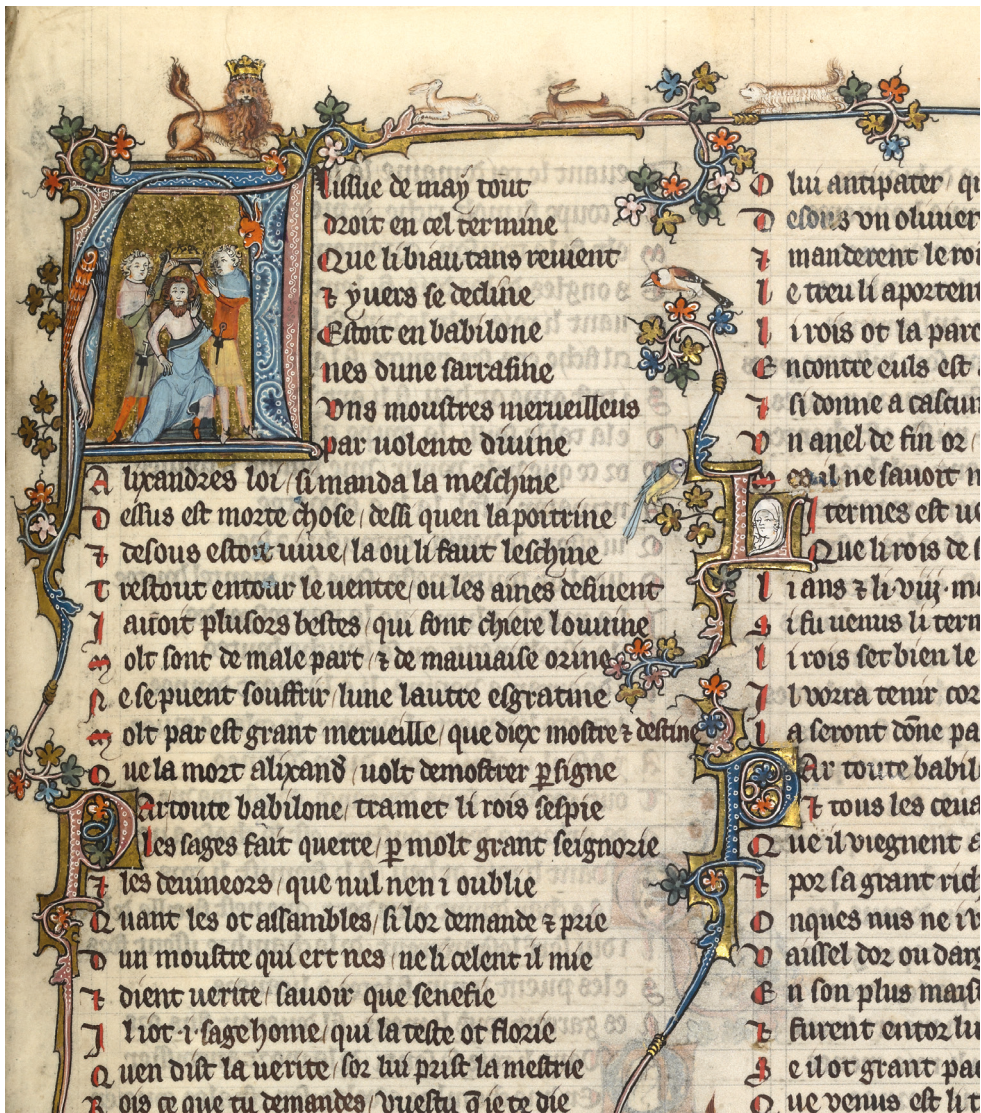 Alissue de may tout
droit en cel termine
Que li biau tans reuient
⁊ yuers se decline
Estoit en babilone
nes dune sarrasine
Vns moustres merueilleus
par uolente diuine
Alixandres loi / si manda la meschine
Dessus est morte chose / dessi quen la poitrine
⁊ desous estoit uiue / la ou li faut leschine
Trestout entour le uentre / ou les aines definent
I auoit plusors bestes / qui font chiere louuine
Molt sont de male part / ⁊ de mauuaise orine
Ne se puent souffrir / lune lautre esgratine
Molt par est grant merueille / que diex mostre ⁊ destine
Que la mort alixand / uolt demostrer p signe
Partoute babilone / tramet li rois sespie
les sages fait querre / p molt grant seignorie
⁊ les deuineors / que nul nen i oublie
Quant les ot assambles / si lor demande ⁊ prie
Dun moustre qui ert nes / ne li celent il mie
⁊ dient uerite / sauoir que senefie
Il i ot .i. sage home / qui la teste ot florie
Quen dist la uerite / sor lui prist la mestrie
Rois ce que tu demandes / vuestu q ie te die
O lui antipater
Desous vn oliuier
⁊ manderent le roi
le treu li aportent
li rois ot la
Encontre euls est
⁊ si donne a
Vn anel de fin or
Mes il ne sauoit
termes est
Que li rois de
li ans ⁊ li .viij.
Si fu uenus li
li rois set bien le
Il vorra tenir
la seront done
Par toute
⁊ tous les
Que il viegnent
por sa grant
Onques nus ne i
Vaissel dor ou
En son plus
⁊ furent entor
Se il ot grant
Que venus est li